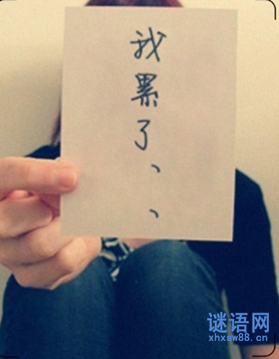 我累了、、、
谜语网
xhxsw88.cn